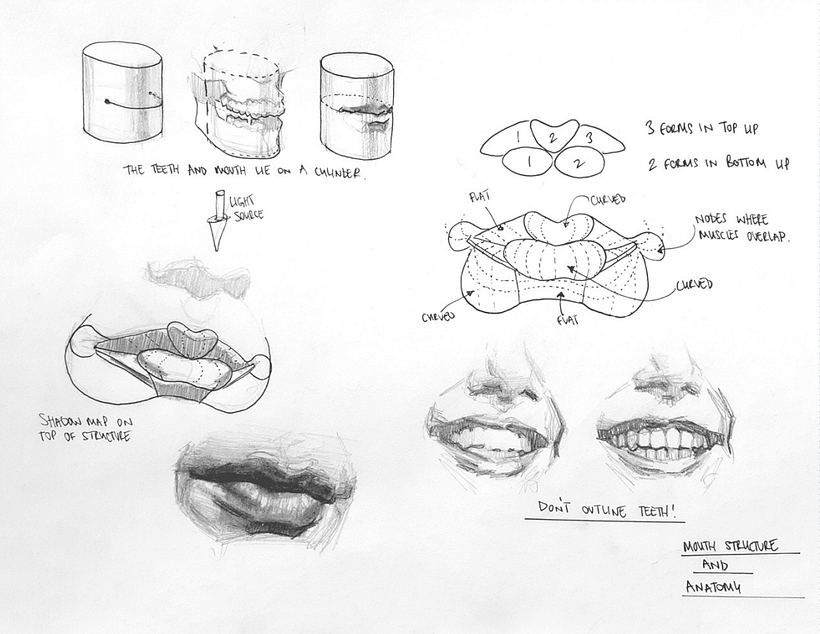 THE TEETH AND MOUTH LIE ON A CYLINDER.
LIGHT
SOURCE
SHADOW MAP ON
TOP OF STRUCTURE
1 2 3
1 2
3 FORMS IN TOP LIP
2 FORMS IN BOTTOM LIP
FLAT
CURVED
NODES WHERE
MUSCLES OVERLAP.
CURVED
CURVED
FLAT
DON'T OUTLINE TEETH!
MOUTH STRUCTURE
AND
ANATOMY